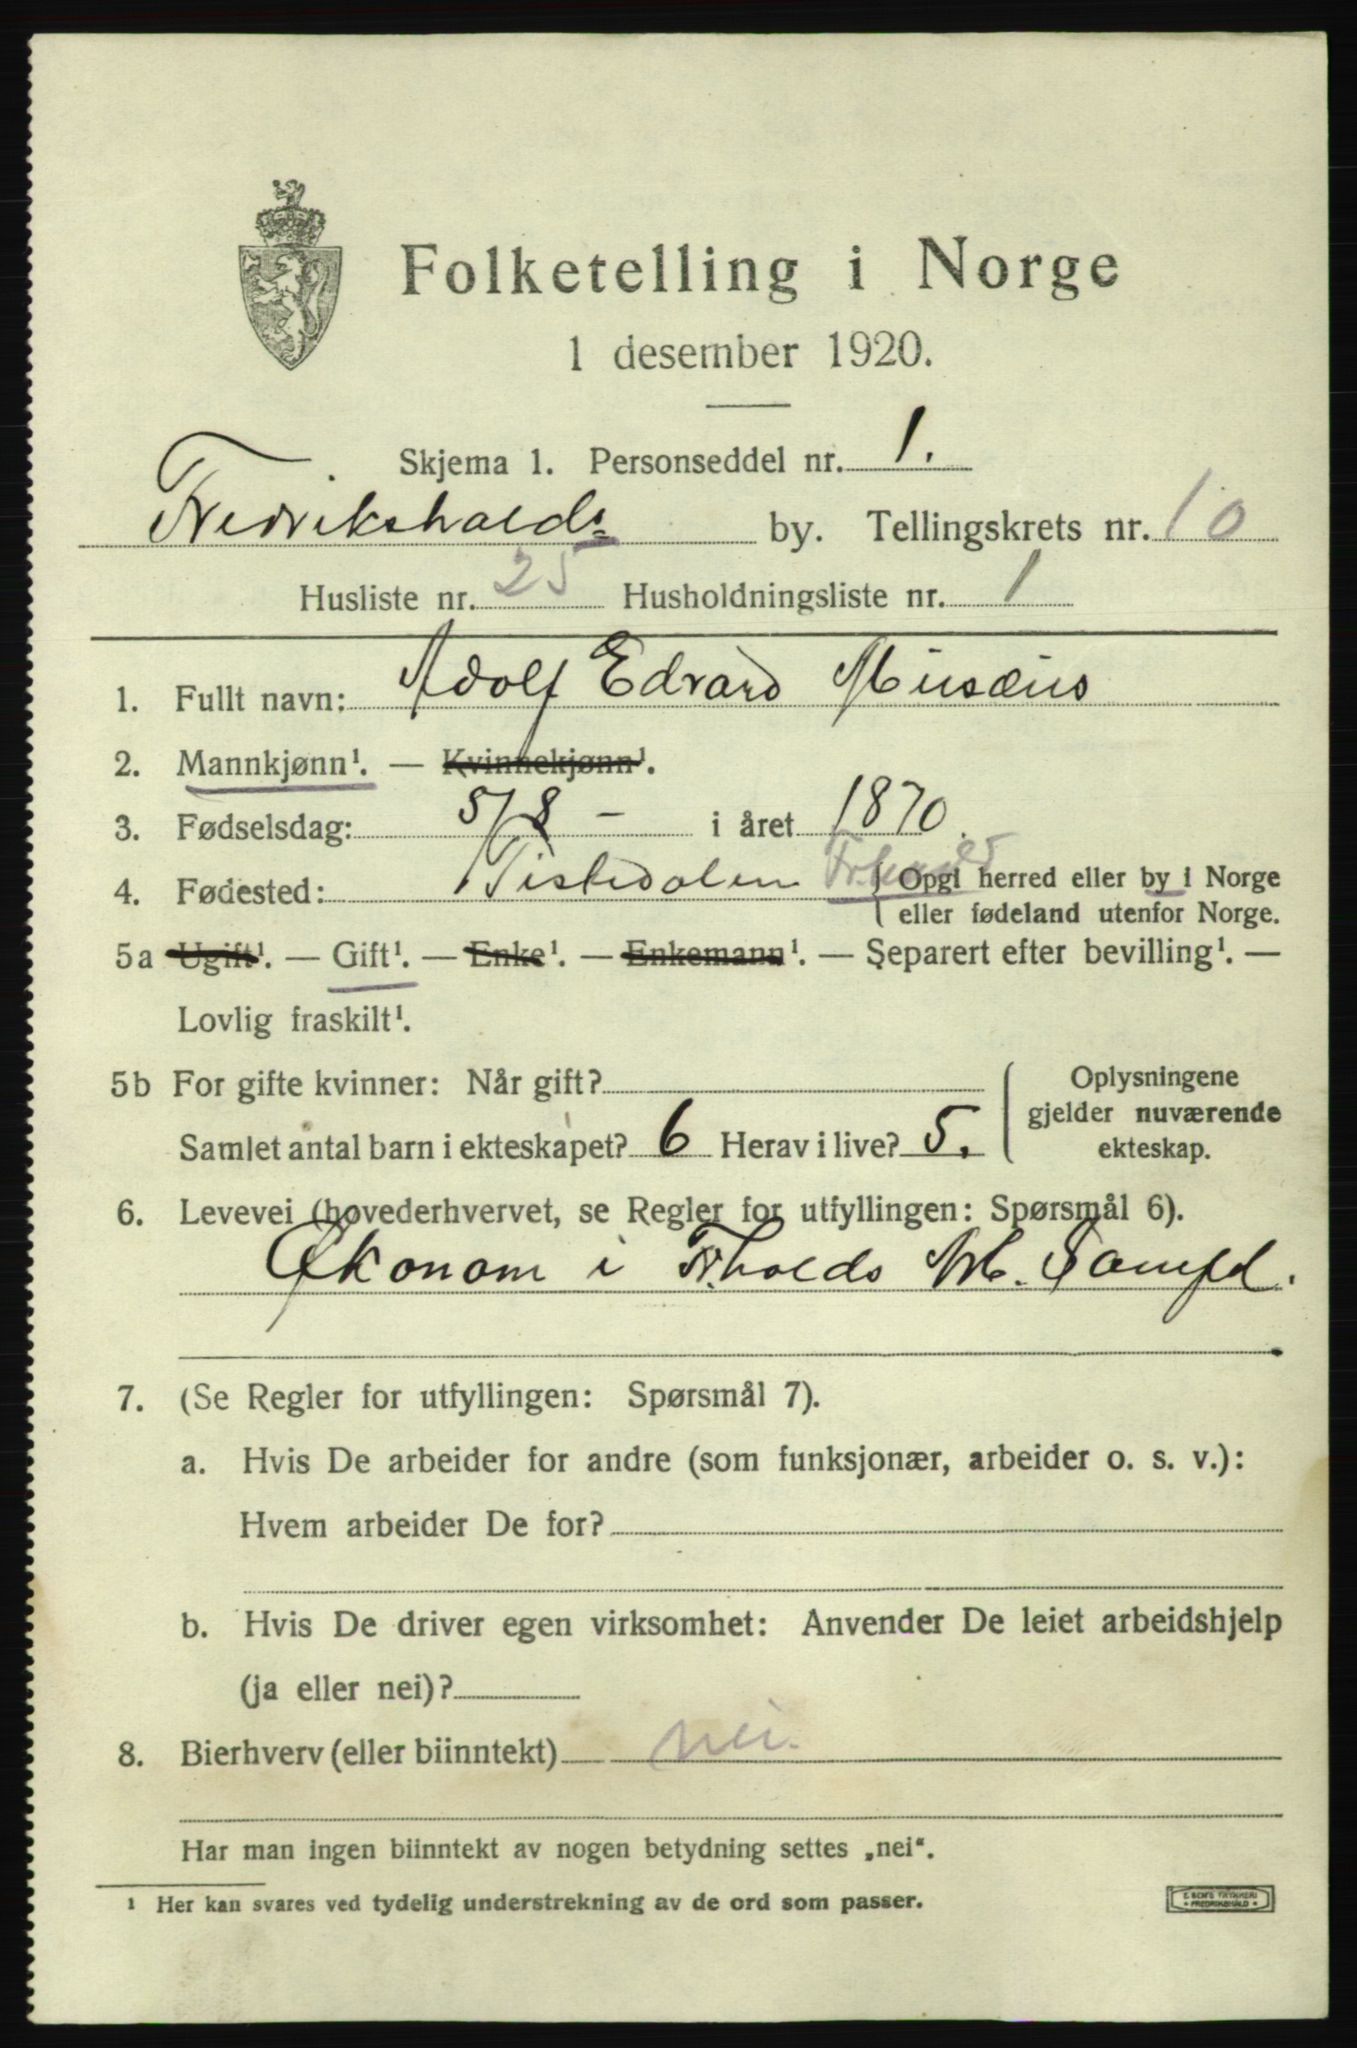 Folketelling i Norge
1 desember 1920.
Skjema 1. Personseddel nr. 1.
Fredrikshalds by. Tellingskrets nr. 10
Husliste nr. 25 Husholdningsliste nr. 1
1. Fullt navn: Adolf Edvard Musæus
2. Mannkjønn¹. — Kvinnekjønn¹.
3. Fødselsdag: 5/8 - i året 1870.
4. Fødested: Tistedalen Fr.hald { Opgi herred eller by i Norge
eller fødeland utenfor Norge.
5a Ugift¹. — Gift¹. — Enke¹. — Enkemann¹. — Separert efter bevilling¹. —
Lovlig fraskilt¹.
5b For gifte kvinner: Når gift?
Samlet antal barn i ekteskapet? 6 Herav i live? 5.
Oplysningene
gjelder nuværende
ekteskap.
6. Levevei (hovederhvervet, se Regler for utfyllingen: Spørsmål 6).
Økonom i Fr.halds Samfd.
7. (Se Regler for utfyllingen: Spørsmål 7).
a. Hvis De arbeider for andre (som funksjonær, arbeider o. s. v.):
Hvem arbeider De for?
b. Hvis De driver egen virksomhet: Anvender De leiet arbeidshjelp
(ja eller nei)?
8. Bierhverv (eller biinntekt) nei.
Har man ingen biinntekt av nogen betydning settes „nei".
¹ Her kan svares ved tydelig understrekning av de ord som passer.
TRYKKERI
FREDRIKSHALD